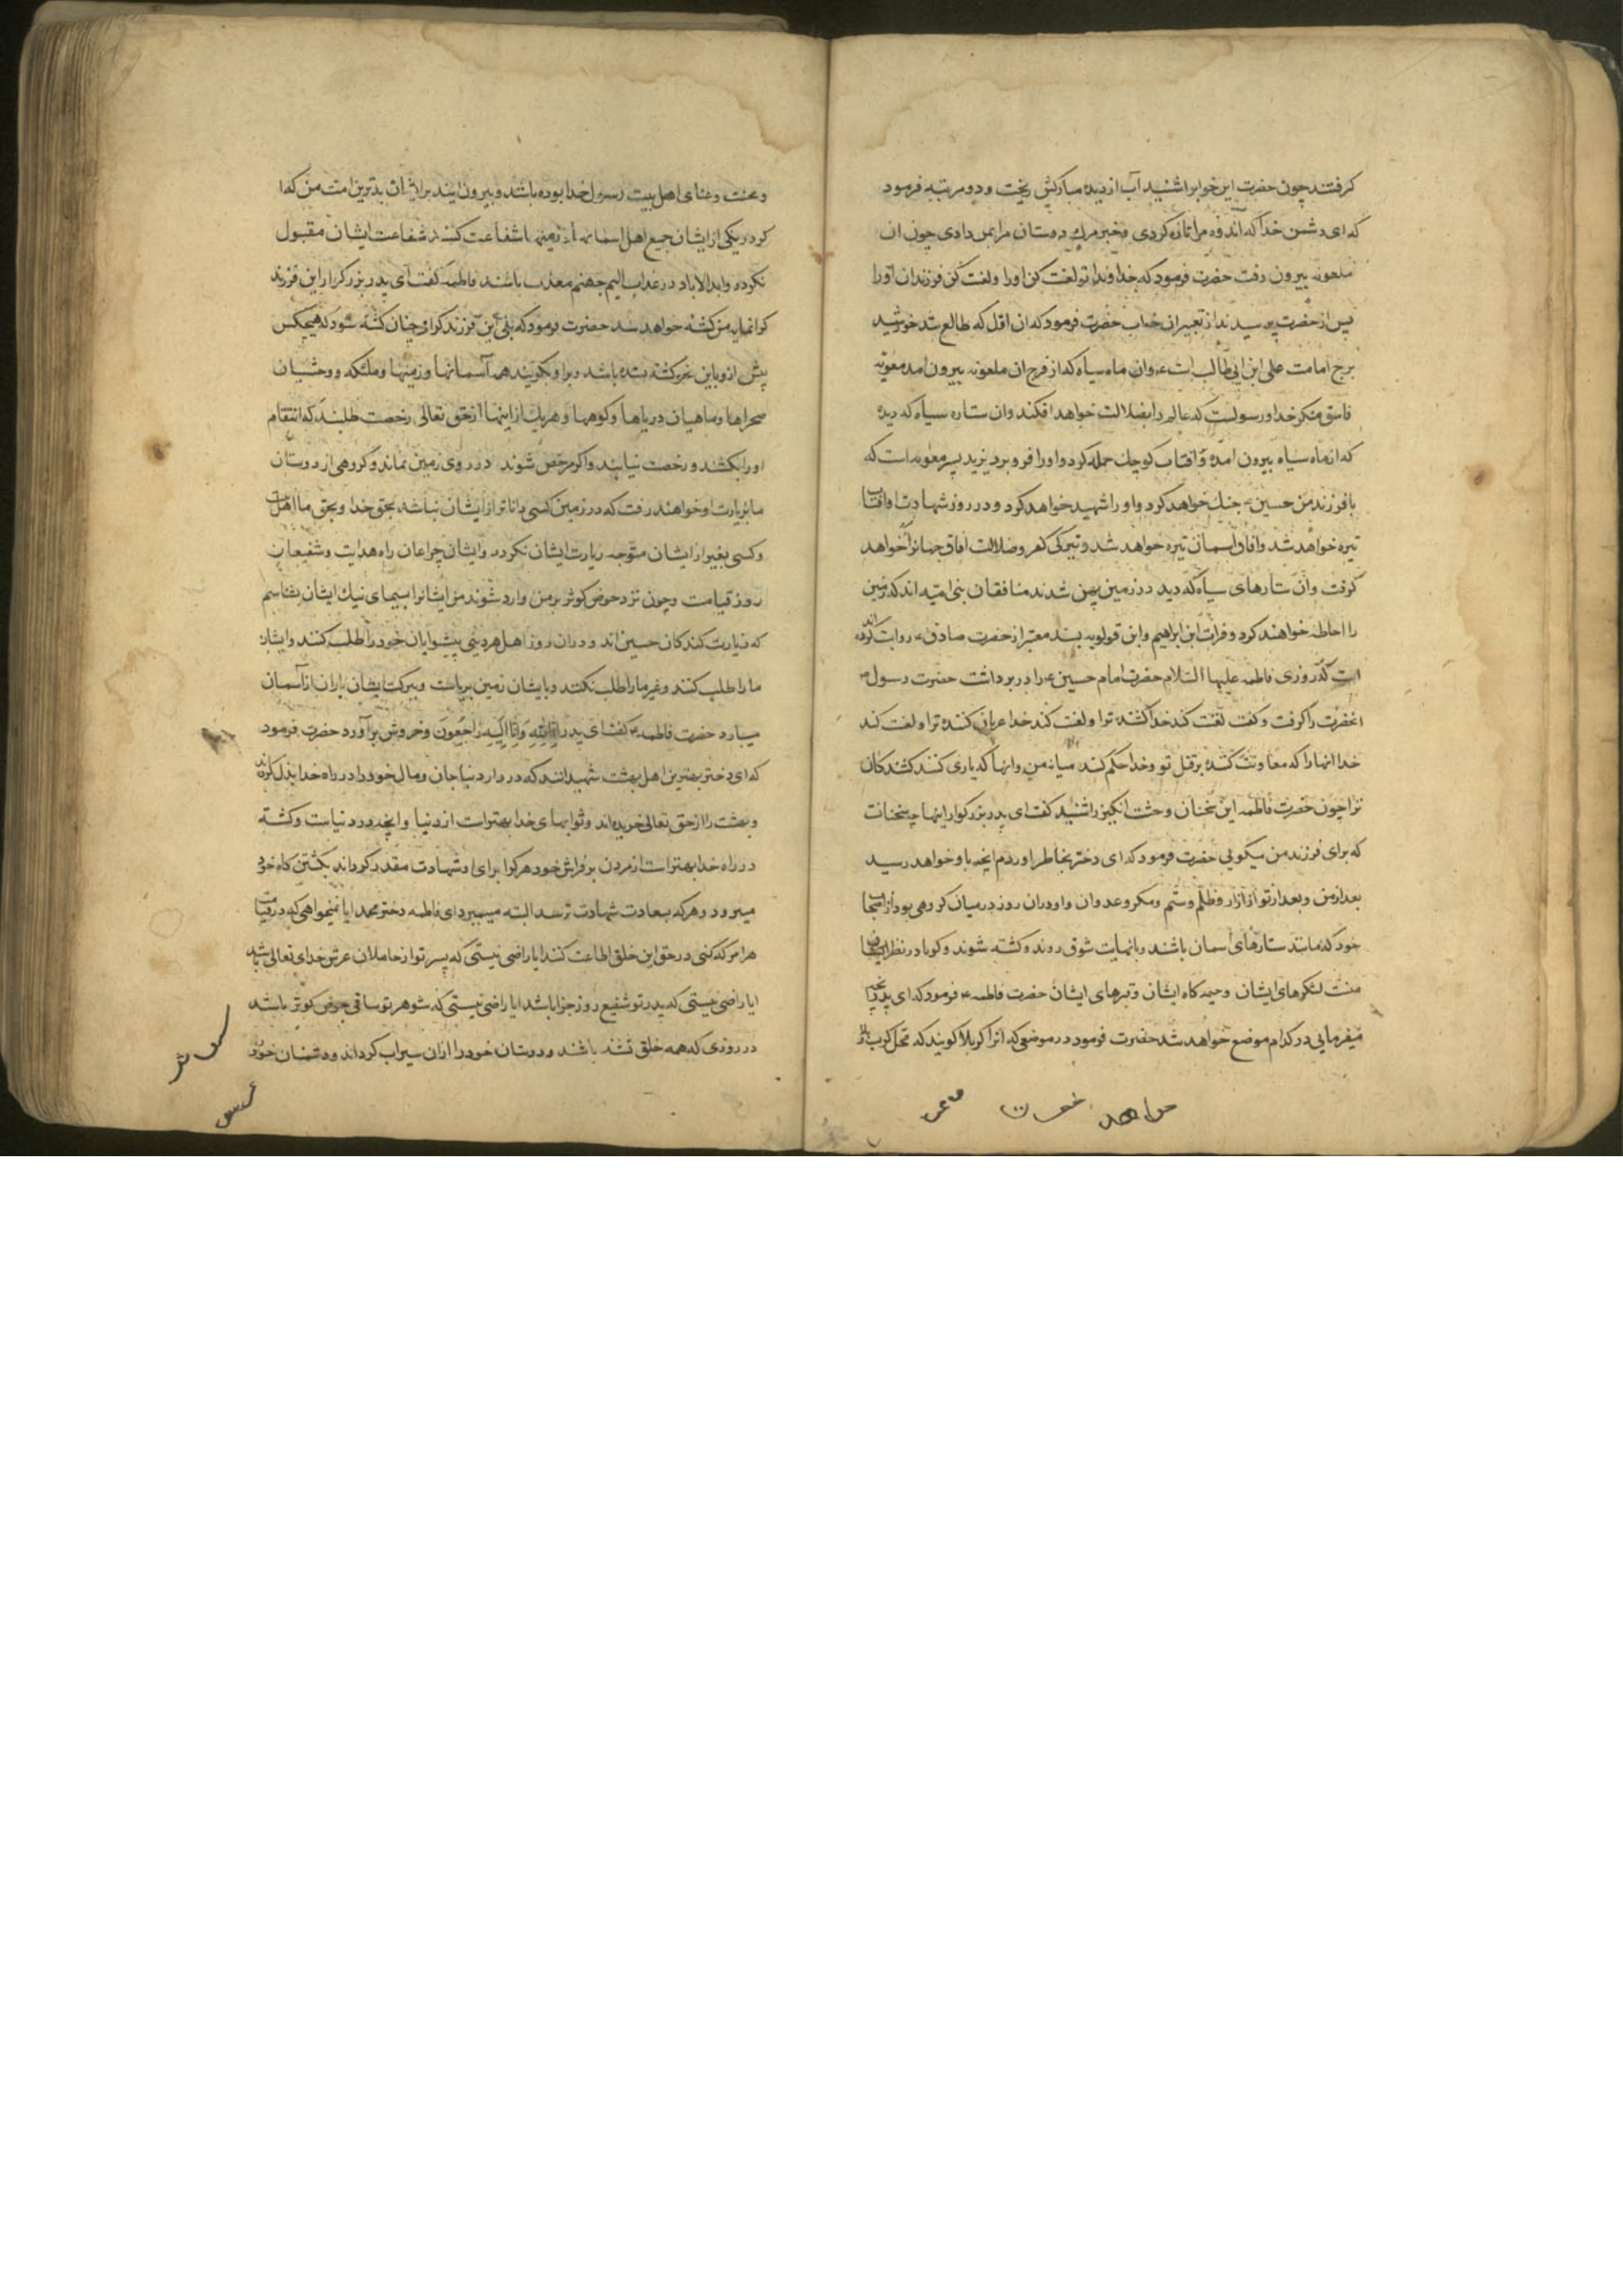 گرفتند چون حضرت این خوابرا شنید آب از دیدهٔ مبارکش ریخت و دو مرتبه فرمود
که ای دشمن خدا که اندوه مرا تازه کردی و خبر مرگ دوستان مرا بمن دادی چون آن
ملعونه بیرون رفت حضرت فرمود که خداوندا تو لعنت کن او را و لعنت کن فرزندان او را
پس از حضرت پرسیدند از تعبیر آن خواب حضرت فرمود که آن اول که طالع شد خورشید
برج امامت علی ابن ابی طالب است ع و آن ماه سیاه که از فرج آن ملعونه بیرون آمد معویه
فاسق منکر خدا و رسولست که عالم را بضلالت خواهد افکند و آن ستاره سیاه که دیده
که از ماه سیاه بیرون آمده و آفتاب کوچک حمله کرد و او را فرو برد یزید پسر معویه است که
با فرزند من حسین ع جنک خواهد کرد و او را شهید خواهد کرد و در روز شهادت او آفتاب
تیره خواهد شد و آفاق آسمان تیره خواهد شد و تیرکی کفر و ضلالت آفاق جهانرا خواهد
کرفت و آن ستارهای سیاه که دید در زمین پهن شدند منافقان بنی امیه اند که زمین
را احاطه خواهند کرد و فرات ابن ابراهیم و ابن قولویه بسند معتبر از حضرت صادق ع روایت کرده اند
است که روزی فاطمه علیها السلام حضرت امام حسین ع را در بر داشت حضرت رسول ص
آنحضرت را کرفت و کفت لعنت کند خدا کشنده ترا و لعنت کند خدا عریان کننده ترا و لعنت کند
خدا آنها را که معاونت کنند بر قتل تو و خدا حکم کند میانه من و آنها که یاری کنند کشندکان
ترا چون حضرت فاطمه این سخنان وحشت انکیز را شنید کفت ای پدر بزرکوار اینها چه سخنانست
که برای فرزند من میکویی حضرت فرمود که ای دختر بخاطر آوردم آنچه باو خواهد رسید
بعد از من و بعد از تو از آزار و ظلم و ستم و مکر و عدوان و او در آن روز در میان کروهی بود از اصحاب
خود که مانند ستارهای آسمان باشند و بانهایت شوق روند و کشته شوند و کویا در نظر
منست لشکرهای ایشان و خیمه کاه ایشان و قبرهای ایشان حضرت فاطمه ع فرمود که ای پدر آنچه
میفرمایی در کدام موضع خواهد شد حضرت فرمود در موضعی که آنرا کربلا کویند که محل کرب و بلا
خواهد
و محنت و عنای اهل بیت رسول خدا بوده باشد و بیرون آیند بر ایشان بدترین امت من که اگر
کرد یکی از ایشان جمیع اهل آسمانها و زمینها شفاعت کنند شفاعت ایشان مقبول
نکردد و ابدالاباد در عذاب الیم جهنم معذب باشند فاطمه کفت ای پدر بزرکوار این فرزند
کرانمایه من کشته خواهد شد حضرت فرمود که بلی این فرزند کرامی چنان کشته شود که هیچکس
پیش از و باین نحو کشته نشده باشد و بر او بکریند همه آسمانها و زمینها و ملئکه و وحشیان
صحراها و ماهیان دریاها و کوهها و هر یک از اینها از حق تعالی رخصت طلبند که انتقام
او را بکشند و رخصت نیابند و اکر مرخص شوند در روی زمین نماند و کروهی از دوستان
ما بزیارت او خواهند رفت که در زمین کسی داناتر از ایشان نباشد بحق خدا و بحق ما اهل بیت
و کسی بغیر از ایشان متوجه زیارت ایشان نکردد و ایشان چراغان راه هدایت و شفیعان
روز قیامت و چون نزد حوض کوثر بر من وارد شوند من ایشانرا بسیمای نیک ایشان بشناسم
که زیارت کنندکان حسین اند و در آن روز اهل هر دینی پیشوایان خود را طلب کنند و ایشان
ما را طلب کنند و غیر ما را طلب نکنند و بایشان زمین برپاست و ببرکت ایشان باران از آسمان
میبارد حضرت فاطمه ع کفت ای پدر اِنّا لِلّهِ وَاِنّا اِلَیهِ راجِعُونَ و خروش برآورد حضرت فرمود
که ای دختر بهترین اهل بهشت شهیدانند که در دار دنیا جان و مال خود را در راه خدا بذل کرده اند
و بهشت را از حق تعالی خریده اند و ثوابهای خدا بهتر است از دنیا و آنچه در دنیاست و کشته
در راه خدا بهتر است از مردن بر فراش خود هر کرا برای او شهادت مقدر کرداند بکشتن کاه خود
میرود و هر که بسعادت شهادت نرسد البته میمیرد ای فاطمه دختر محمد آیا نمیخواهی که در قیامت
هر امر که کنی در حق این خلق اطاعت کنند آیا راضی نیستی که پسر تو از حاملان عرش خدای تعالی باشد
آیا راضی نیستی که پدر تو شفیع روز جزا باشد آیا راضی نیستی که شوهر تو ساقی حوض کوثر باشد
در روزی که همه خلق تشنه باشند و دوستان خود را از آن سیراب کرداند و دشمنان خود را